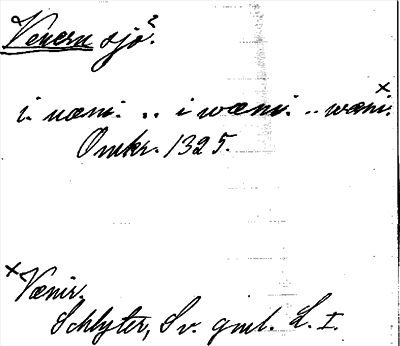 Venern sjö?
i. uæni. .. i wæni. .. wæni.×
Omkr. 1325.
× Vænir.
Schlyter, Sv. gml. L. I.